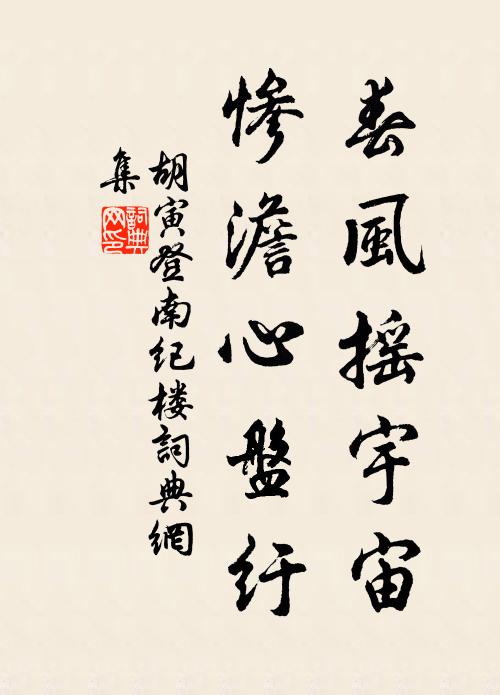 春風搖宇宙
慘澹心盤紆
胡寅登南紀樓詞典網
集
詞典
网印